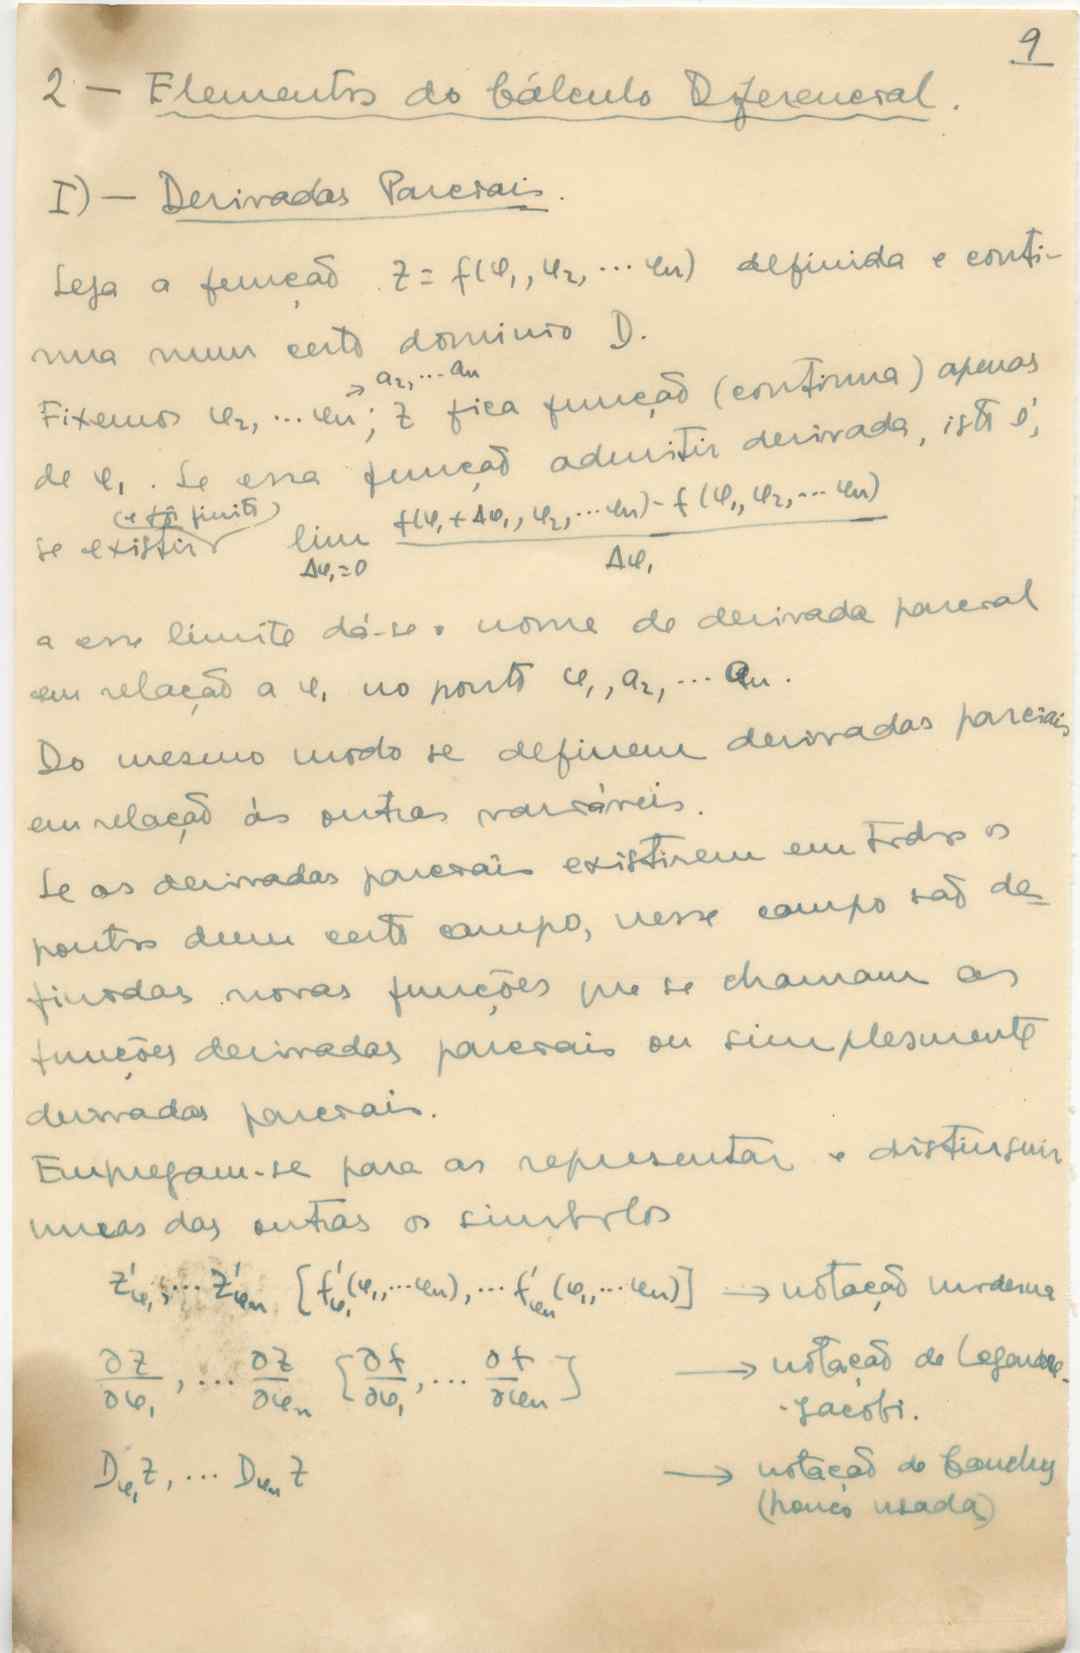 9
2 — Elementos do Cálculo Diferencial.
I) — Derivadas Parciais.
Seja a função z = f(φ₁, φ₂, ... φn) definida e contí-
nua num certo dominio D.
→ a₂, ... an
Fixemos φ₂, ... φn; z fica função (contínua) apenas
de φ₁. Se essa função admitir derivada, isto é,
(e fôr finito)
se existir lim Δφ₁=0 f(φ₁+Δφ₁, φ₂, ... φn) - f(φ₁, φ₂, ... φn) / Δφ₁
a esse limite dá-se o nome de derivada parcial
em relação a φ₁ no ponto φ₁, a₂, ... an.
Do mesmo modo se definem derivadas parciais
em relação ás outras variáveis.
Se as derivadas parciais existirem em todos os
pontos dum certo campo, nesse campo são de-
finidas novas funções que se chamam as
funções derivadas parciais ou simplesmente
derivadas parciais.
Empregam-se para as representar e distinguir
umas das outras os simbolos
z'φ₁, ... z'φn [f'φ₁(φ₁, ... φn), ... f'φn(φ₁, ... φn)] → notação moderna
∂z/∂φ₁, ... ∂z/∂φn [∂f/∂φ₁, ... ∂f/∂φn] → notação de Legendre-
-Jacobi.
Dφ₁z, ... Dφn z → notação de Cauchy
(pouco usada)